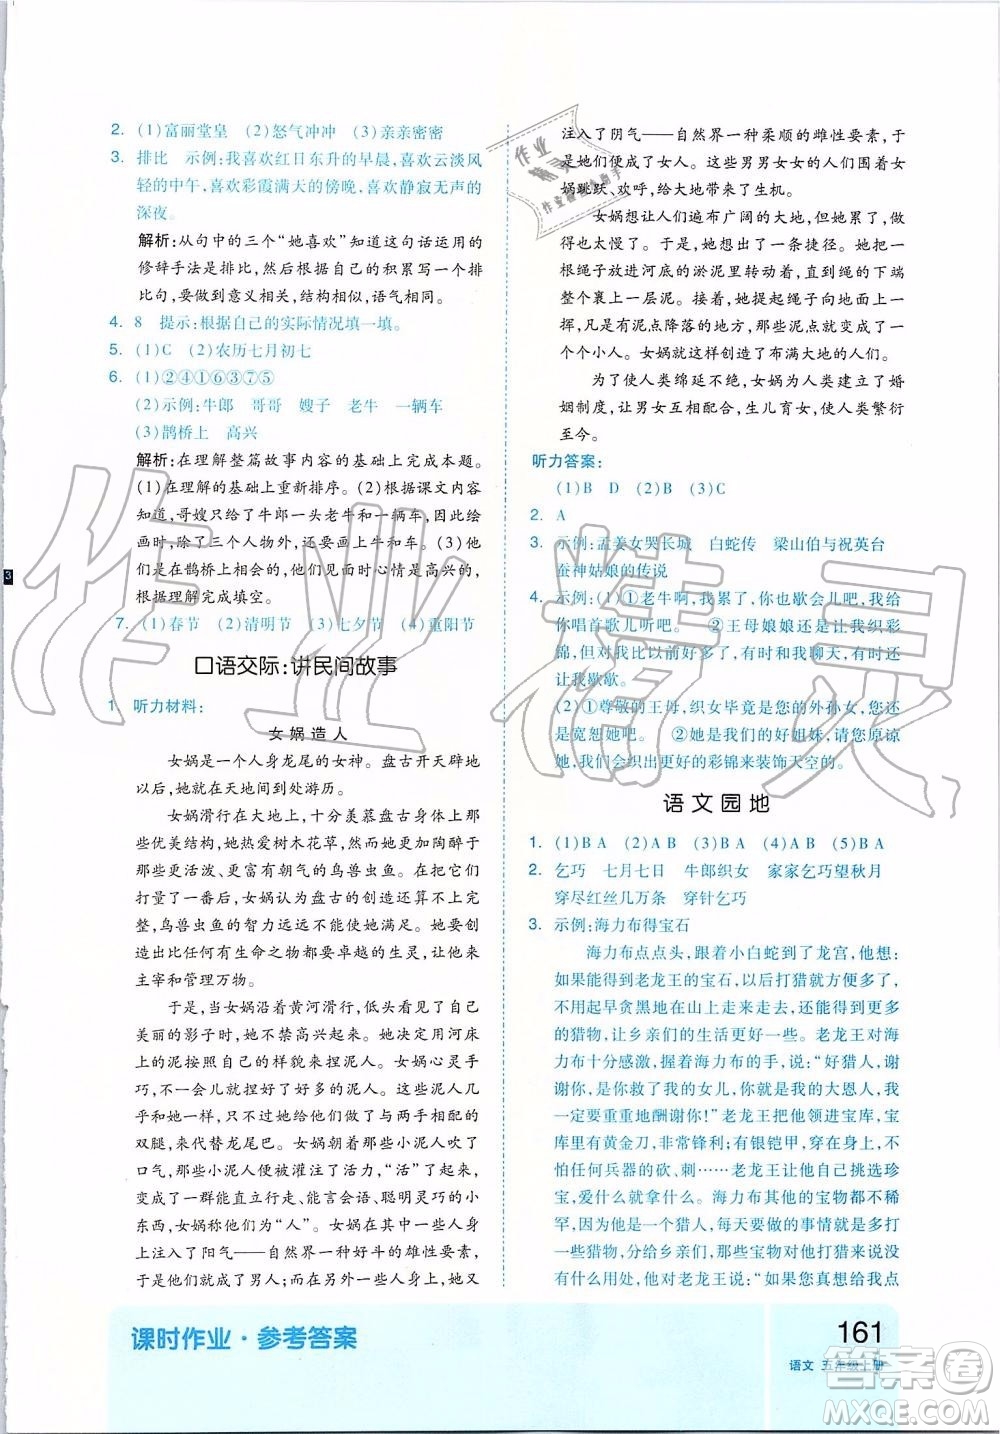 2. (1)富丽堂皇 (2)怒气冲冲 (3)亲亲密密
3. 排比 示例:我喜欢红日东升的早晨,喜欢云淡风
轻的中午,喜欢彩霞满天的傍晚,喜欢静寂无声的
深夜。
解析:从句中的三个“她喜欢”知道这句话运用的
修辞手法是排比,然后根据自己的积累写一组排
比句,要做到意义相关,结构相似,语气相同。
4. 8 提示:根据自己的实际情况填一填。
5. (1)C (2)农历七月初七
6. (1)②④①⑥③⑦⑤
(2)示例:牛郎 哥哥 嫂子 老牛 一辆车
(3)鹊桥上 高兴
解析:在理解整篇故事内容的基础上完成本题。
(1)在理解的基础上重新排序。(2)根据课文内容
知道,哥嫂只给了牛郎一头老牛和一辆车,在绘
画时,除了三个人物外,还有牛和车。(3)他们此
时正在鹊桥上相会,他们此时面对面心情是高兴的,
根据理解进行填空。
7. (1)春节 (2)清明节 (3)七夕节 (4)重阳节
口语交际:讲民间故事
1. 听力材料:
女娲造人
女娲是一个人身龙尾的女神。盘古开天辟地
以后,她就在天地间到处游历。
女娲滑行在大地上,她十分羡慕盘古创造的那
些优美结构,她热爱树木花草,然而她更加陶醉
于那些更活泼、更富有朝气的鸟兽虫鱼。在把它
们打量了一番后,女娲认为盘古的创造还算不上完
整,鸟兽虫鱼的智力远远不能使她满足。她要创造
出比任何有生命之物都要卓越的生灵,让他们来
主宰和管理万物。
于是,当女娲沿着黄河滑行,低头看见了自己
美丽的影子时,她不禁高兴起来。她决定用河床
上的泥按照自己的形貌来捏泥人。女娲心灵手
巧,不一会儿就捏好了好多的泥人。这些泥人几
乎和她一样,只不过她给他们做了与两手相配的
双腿,来代替龙尾巴。女娲朝着那些小泥人吹了
口气,那些小泥人便被灌注了活力,“活”了起来,
变成了一群能直立行走、能言会语、聪明灵巧的小
东西,女娲称他们为“人”。女娲在其中一些人身上
注入了阳气——自然界一种好斗的雄性要素,于
是他们就成了男人;而在另外一些人身上,她又
注入了阴气——自然界一种柔顺的雌性要素,于
是她们就成了女人。这些男男女女的人们围着女
娲跳跃、欢呼,给大地带来了生机。
女娲想让人们遍布广阔的大地,但她累了,做
得也太慢了。于是,她想出了一条捷径。她把一
根绳子放进河底的淤泥里转动着,直到绳的下端
整个裹上一层泥。接着,她提起绳子向地面上一
挥,凡是有泥点降落的地方,那些泥点就变成了一
个个小人。女娲就这样创造了布满大地的人们。
为了使人类绵延不绝,女娲为人类建立了婚
姻制度,让男女互相配合,生儿育女,使人类繁衍
至今。
听力答案:
(1)B D (2)B (3)C
2. A
3. 示例:孟姜女哭长城 白蛇传 梁山伯与祝英台
蚕神姑娘的传说
4. 示例:(1)①老牛啊,我太累了,你也歇会儿吧,我给
你唱首歌儿听吧。 ②王母娘娘还是让我织彩
锦,
(2)①尊敬的王母,织女毕竟是您的外孙女,您还
是宽恕她吧。 ②她是我们的好姐妹,请您原谅
她,我们会织出更多的彩锦来装饰天空的。
语文园地
1. (1)B A (2)A B (3)A B (4)A B (5)B A
2. 乞巧 七月七日 牛郎织女 家家乞巧望秋月
穿尽红丝几万条 穿针乞巧
3. 示例:海力布得宝石
海力布点点头,跟着小白蛇到了龙宫,他想:
如果能得到老龙王的宝石,以后打猎就方便多了,
不用起早贪黑地在山上走来走去,还能得到更多
的猎物,让乡亲们的生活更好一些。老龙王对海
力布十分感激,握着海力布的手,说:“好猎人,谢
谢你,是你救了我的女儿,你是我们的大恩人,我
一定要重重地酬谢你!”老龙王把他领进宝库,宝
库里有黄金刀,非常锋利;有银铠甲,穿在身上,不
怕任何兵器的砍、刺……老龙王让他自己挑选珍
宝,爱什么就拿什么。海力布对其他的宝物都不稀
罕,他想:我是一个猎人,每天要做的事情就是打
一些猎物,分给乡亲们,这些宝物对我来说并没
有什么用处,他对老龙王说:“如果您真想给我点
课时作业·参考答案
161
语文 五年级上册
作业精灵
答案圈
MXQE.COM